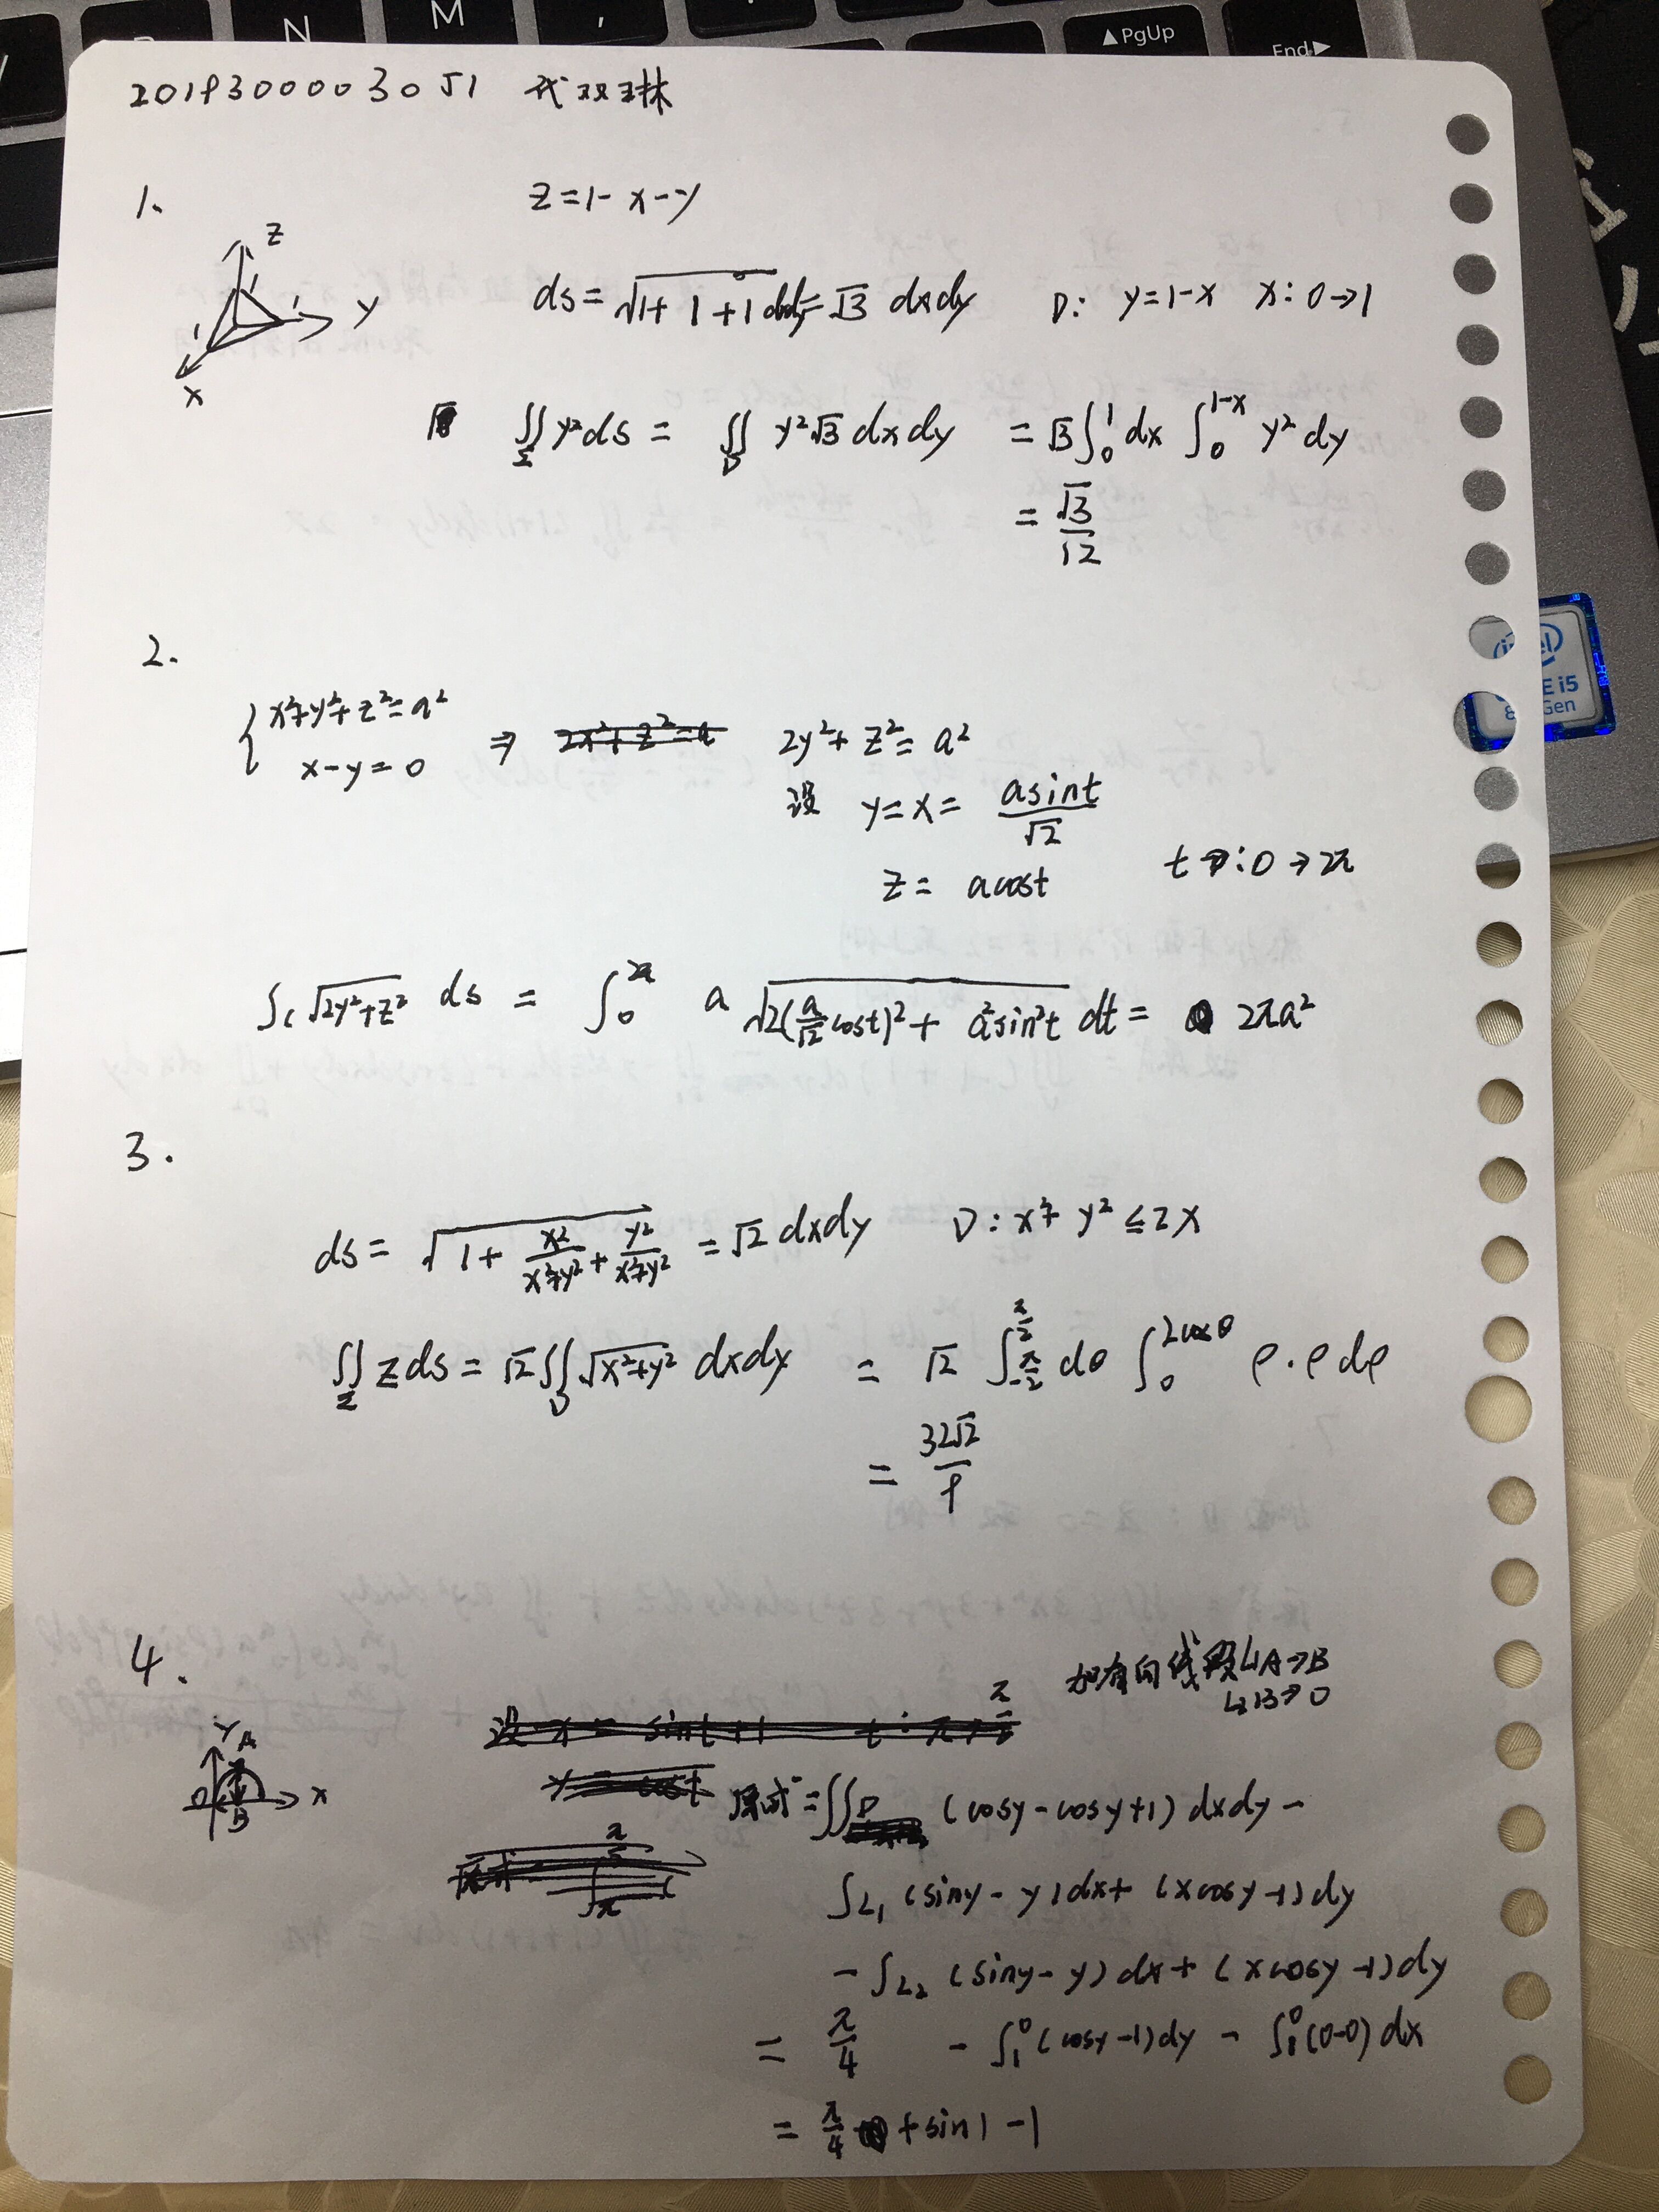 N M ,
▲PgUp End▶
2019300003051
1.
z=1-x-y
z
1
1
1
y
x
ds=√(1+1+1) dxdy=√3 dxdy D: y=1-x x:0→1
∬_Σ y²ds = ∬_D y²√3 dxdy = √3∫_0^1 dx ∫_0^{1-x} y² dy
= √3/12
2.
{ x²+y²+z²=a²
x-y=0 ⇒ 2y²+z²=a²
设 y=x= asint/√2
z= acost t:0→2π
∫_c √(2y²+z²) ds = ∫_0^{2π} a √(2(a/√2 cost)²+a²sin²t) dt = 2πa²
3.
ds= √(1+x²/(x²+y²)+y²/(x²+y²)) =√2 dxdy D: x²+y²≤2x
∬_Σ zds=√2∬_D √(x²+y²) dxdy = √2 ∫_{-π/2}^{π/2} dθ ∫_0^{2cosθ} ρ·ρdρ
= 32√2/9
4.
加有向线段L1A→B
L2B→O
y A
O B x
原式=∬_D (cosy-cosy+1)dxdy-
∫_{L1} (siny-y)dx+(xcosy-1)dy
-∫_{L2} (siny-y)dx+(xcosy-1)dy
= π/4 - ∫_1^0 (cosy-1)dy - ∫_1^0 (0-0)dx
= π/4 +sin1-1
intel
CORE i5
8th Gen